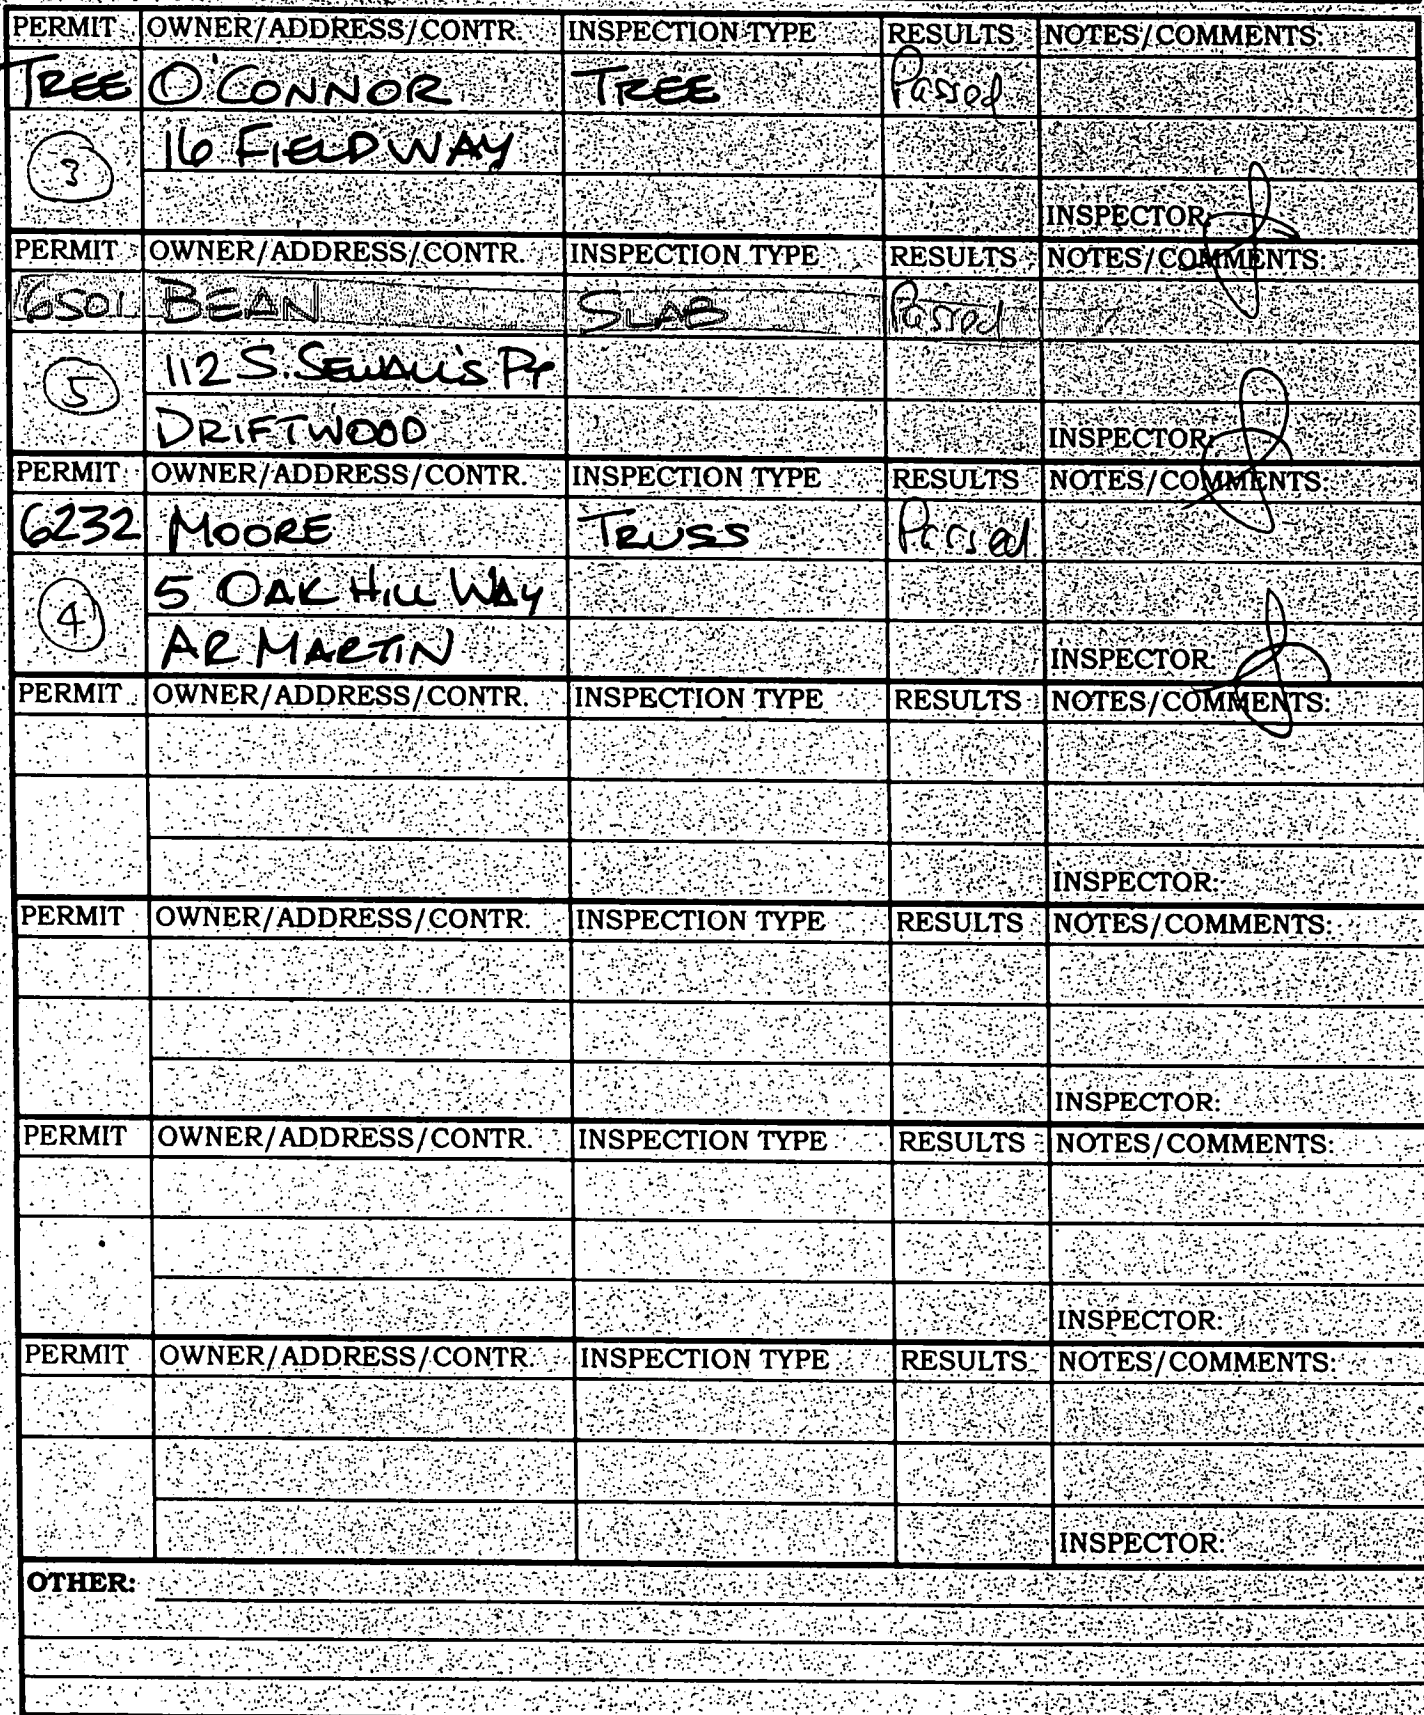 PERMIT OWNER/ADDRESS/CONTR. INSPECTION TYPE RESULTS NOTES/COMMENTS:
TREE O'CONNOR TREE Passed
3 16 FIELDWAY
INSPECTOR:
PERMIT OWNER/ADDRESS/CONTR. INSPECTION TYPE RESULTS NOTES/COMMENTS:
6501 BEAN SLAB Passed
5 112 S. SEWALL'S PT
DRIFTWOOD INSPECTOR:
PERMIT OWNER/ADDRESS/CONTR. INSPECTION TYPE RESULTS NOTES/COMMENTS:
6232 MOORE TRUSS Passed
4 5 OAK HILL WAY
AR MARTIN INSPECTOR:
PERMIT OWNER/ADDRESS/CONTR. INSPECTION TYPE RESULTS NOTES/COMMENTS:
INSPECTOR:
PERMIT OWNER/ADDRESS/CONTR. INSPECTION TYPE RESULTS NOTES/COMMENTS:
INSPECTOR:
PERMIT OWNER/ADDRESS/CONTR. INSPECTION TYPE RESULTS NOTES/COMMENTS:
INSPECTOR:
PERMIT OWNER/ADDRESS/CONTR. INSPECTION TYPE RESULTS NOTES/COMMENTS:
INSPECTOR:
OTHER: